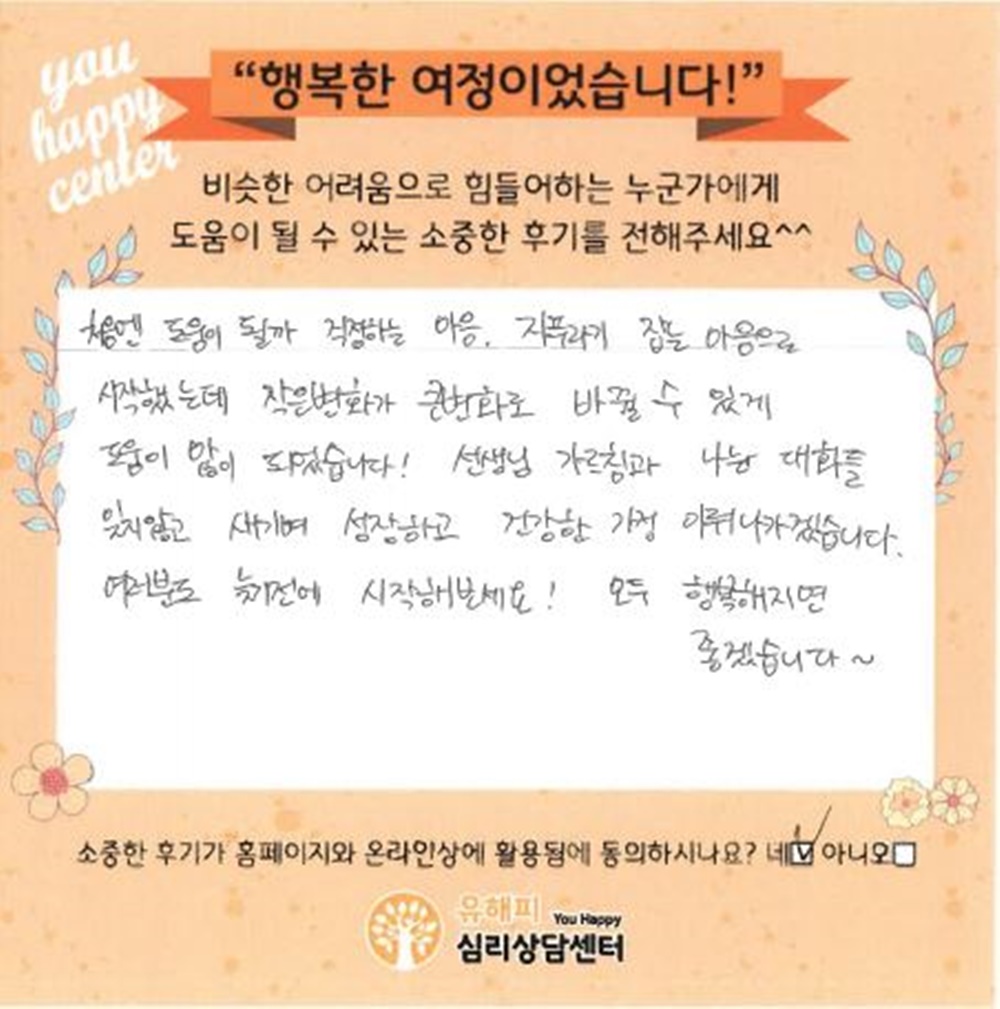 you
happy
center
“행복한 여정이었습니다!”
비슷한 어려움으로 힘들어하는 누군가에게
도움이 될 수 있는 소중한 후기를 전해주세요^^
처음엔 도움이 될까 걱정하는 마음, 지푸라기 잡는 마음으로
시작했는데 작은변화가 큰변화로 바뀔 수 있게
도움이 많이 되었습니다! 선생님 가르침과 나눈 대화들
잊지않고 새기며 성장하고 건강한 가정 이뤄나가겠습니다.
여러분도 늦기전에 시작해보세요! 모두 행복해지면
좋겠습니다~
소중한 후기가 홈페이지와 온라인상에 활용됨에 동의하시나요? 네☑ 아니오☐
유해피 You Happy
심리상담센터